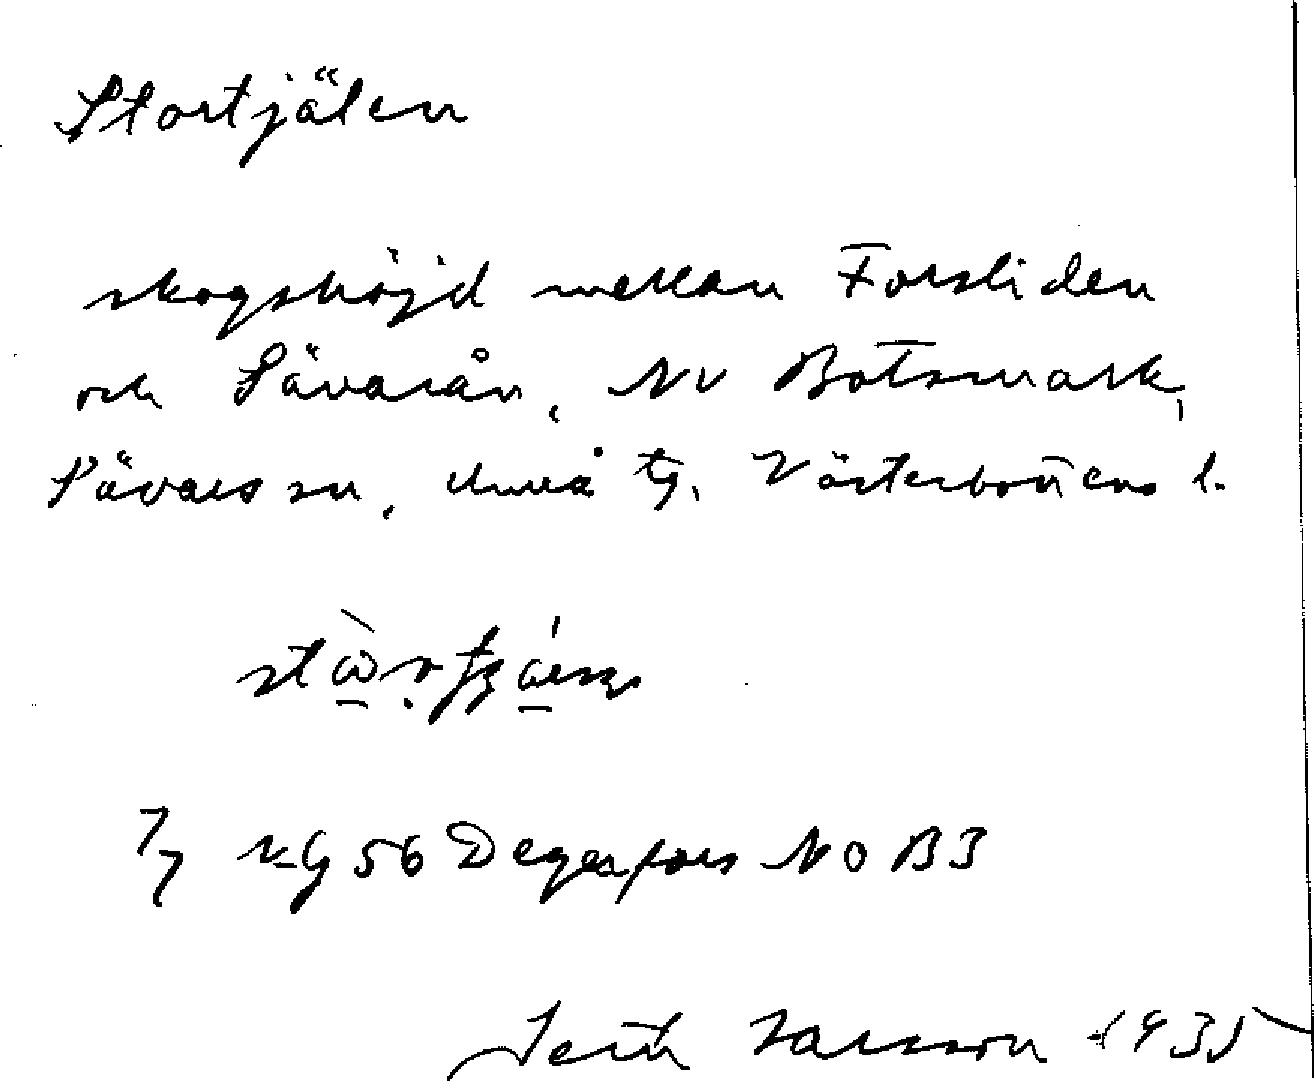 Stortjälen
skogshöjd mellan Forsliden
och Sävarån, NV Botsmark,
Sävars sn, Umeå tg, Västerbottens l.
7/7 KG 56 Degerfors NO B3
Seth Larsson 1935